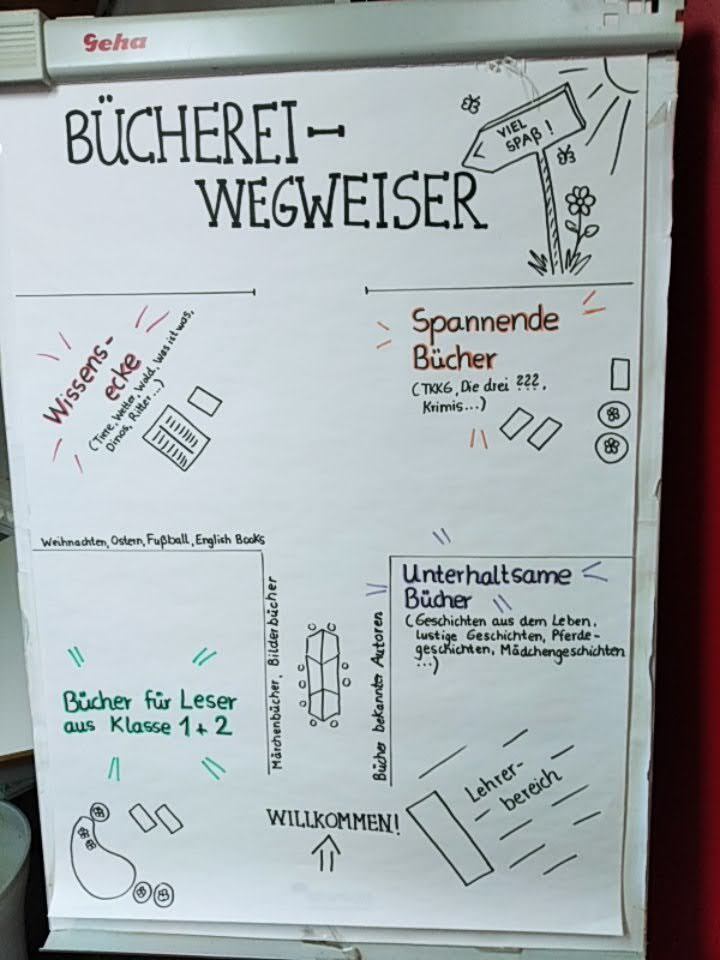 Geha
BÜCHEREI-
WEGWEISER
VIEL
SPAß!
Wissens-
ecke
(Tiere, Wetter, Wald, Was ist was,
Dinos, Ritter...)
Spannende
Bücher
(TKKG, Die drei ???,
Krimis...)
Weihnachten, Ostern, Fußball, English Books
Märchenbücher, Bilderbücher
Bücher bekannter Autoren
Unterhaltsame
Bücher
(Geschichten aus dem Leben,
lustige Geschichten, Pferde-
geschichten, Mädchengeschichten
...)
Bücher für Leser
aus Klasse 1+2
WILLKOMMEN!
Lehrer-
bereich